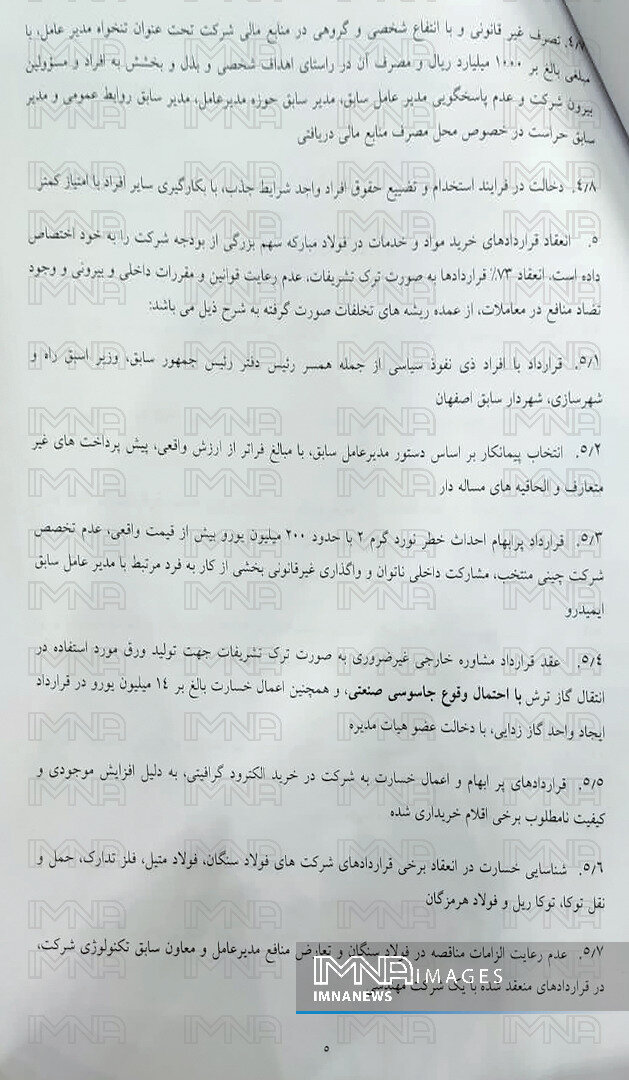 ۴/۷. تصرف غیر قانونی و با انتفاع شخصی و گروهی در منابع مالی شرکت تحت عنوان تنخواه مدیر عامل، با
مبلغی بالغ بر ۱۰۰۰ میلیارد ریال و مصرف آن در راستای اهداف شحصی و بذل و بخشش به افراد و مسؤولین
بیرون شرکت و عدم پاسخگویی مدیر عامل سابق، مدیر سابق حوزه مدیرعامل، مدیر سابق روابط عمومی و مدیر
سابق حراست در خصوص محل مصرف منابع مالی دریافتی
۴/۸. دخالت در فرایند استخدام و تضییع حقوق افراد واجد شرایط جذب، با بکارگیری سایر افراد با امتیاز کمتر
۵. انعقاد قراردادهای خرید مواد و خدمات در فولاد مبارکه سهم بزرگی از بودجه شرکت را به خود اختصاص
داده است. انعقاد ۷۳٪ قراردادها به صورت ترک تشریفات، عدم رعایت قوانین و مقررات داخلی و بیرونی و وجود
تضاد منافع در معاملات، از عمده ریشه های تخلفات صورت گرفته به شرح ذیل می باشد:
۵/۱. قرارداد با افراد ذی نفوذ سیاسی از جمله همسر رئیس دفتر رئیس جمهور سابق، وزیر اسبق راه و
شهرسازی، شهردار سابق اصفهان
۵/۲. انتخاب پیمانکار بر اساس دستور مدیرعامل سابق، با مبالغ فراتر از ارزش واقعی، پیش پرداخت های غیر
متعارف و الحاقیه های مساله دار
۵/۳. قرارداد پرابهام احداث خطر نورد گرم ۲ با حدود ۲۰۰ میلیون یورو بیش از قیمت واقعی، عدم تخصص
شرکت چینی منتخب، مشارکت داخلی ناتوان و واگذاری غیرقانونی بخشی از کار به فرد مرتبط با مدیر عامل سابق
ایمیدرو
۵/۴. عقد قرارداد مشاوره خارجی غیرضروری به صورت ترک تشریفات جهت تولید ورق مورد استفاده در
انتقال گاز ترش با احتمال وقوع جاسوسی صنعتی، و همچنین اعمال خسارت بالغ بر ۱۴ میلیون یورو در قرارداد
ایجاد واحد گاز زدایی، با دخالت عضو هیات مدیره
۵/۵. قراردادهای پر ابهام و اعمال خسارت به شرکت در خرید الکترود گرافیتی، به دلیل افزایش موجودی و
کیفیت نامطلوب برخی اقلام خریداری شده
۵/۶. شناسایی خسارت در انعقاد برخی قراردادهای شرکت های فولاد سنگان، فولاد متیل، فلز تدارک، حمل و
نقل توکا، توکا ریل و فولاد هرمزگان
۵/۷. عدم رعایت الزامات مناقصه در فولاد سنگان و تعارض منافع مدیرعامل و معاون سابق تکنولوژی شرکت،
در قراردادهای منعقد شده با یک شرکت مهندسی
IMNA IMAGES
IMNANEWS
۵